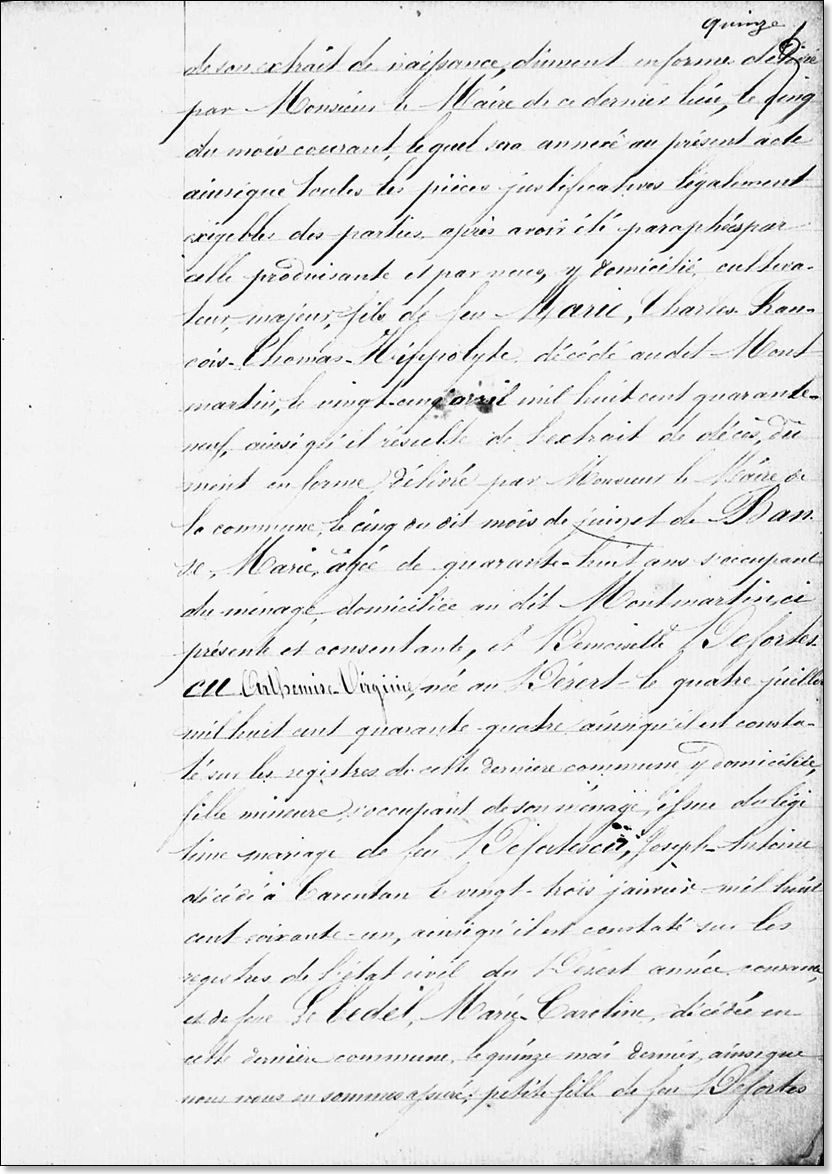 quinze
de son extrait de naissance, dûment en forme délivré
par Monsieur le Maire de ce dernier lieu, le cinq
du mois courant, lequel sera annexé au présent acte
ainsique toutes les pièces justificatives légalement
exigibles des parties, après avoir été paraphées par
celle produisante et par nous, y domicilié, cultiva-
teur, majeur, fils de feu Marie, Charles-Fran-
çois-Thomas-Hippolyte, décédé audit Mont-
martin, le vingt-cinq avril mil huit cent quarante-
neuf, ainsi qu'il résulte de l'extrait de décès, dû-
ment en forme délivré par Monsieur le Maire de
la commune, le cinq du dit mois de et de
se, Marie, âgée de quarante-huit ans s'occupant
du ménage, domiciliée au dit Montmartin, ci
présente et consentante, et Demoiselle Defortes-
cu Arthemise-Virginie, née au Désert le quatre juillet
mil huit cent quarante-quatre ainsiqu'il est consta-
té sur les registres de cette dernière commune y domiciliée,
fille mineure s'occupant de son ménage, issue du légi
time mariage de feu Defortescu, Joseph-Antoine
décédé à Carentan le vingt-trois janvier mil huit
cent soixante-un, ainsiqu'il est constaté sur les
registres de l'état civil du Désert année courante,
et de feue Le bedel, Marie-Caroline, décédée en
cette dernière commune, le quinze mai dernier, ainsi que
nous nous en sommes assuré; petite fille de feu Defortes